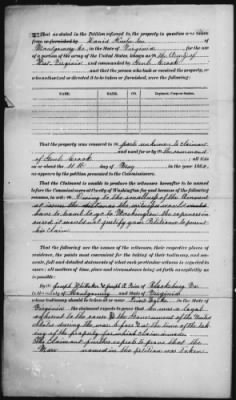 That as stated in the Petition referred to, the property in question was
taken from or furnished by David Keister Sr of
Montgomery Co, in the State of Virginia for the use
of a portion of the army of the United States, known as the Army of
West Virginia and commanded by Genl Crook
and that the person who took or received the property, or
who authorized or directed it to be taken or furnished, were the following:
NAME. RANK. CO. Regiment, Corps or Station.
That the property was removed to parts unknown to claimant
and used for or by the command
of Genl Crook all this
on or about the day of May in the year 186
as appears by the petition presented to the Commissioners.
That the Claimant is unable to produce the witnesses hereafter to be named
before the Commissioners of Claims at Washington for good because of the following
reasons, to wit: Owing to the smallness of the Amount
at issue the distance the witnesses would
have to travel to go to Washington the expenses in
curred it would not justify your Petitioner to prove
his claim
That the following are the names of the witnesses, their respective places of
residence, the points most convenient for the taking of their testimony, and sepa-
rate, full and detailed statements of what each particular witness is expected to
prove; all matters of time, place and circumstance being set forth as explicitly as
is possible.
By Joseph H Whitaker & Joseph A Price of Blacksburg Va
in the county of Montgomery and State of Virginia
whose testimony should be taken at or near in the State of
Virginia the claimant expects to prove that he was a loyal
adherent to the cause & the Government of the United
States during the war before & at the time of the tak
ing of the property for which claim is made
The Claimant further expects to prove that the
named in the petition was taken